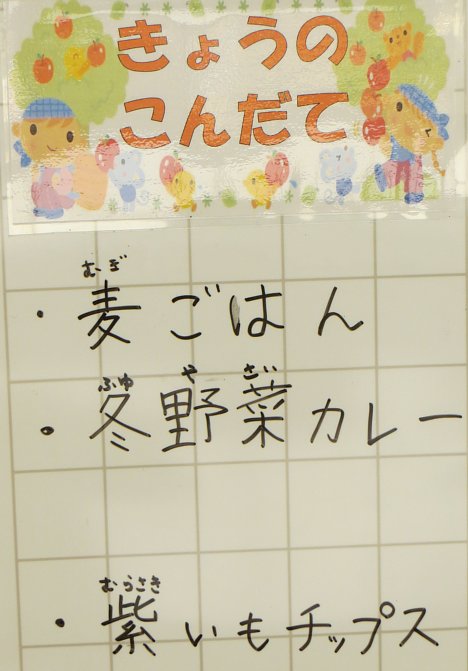 きょうの
こんだて
むぎ
・麦ごはん
ふゆ や さい
・冬野菜カレー
むらさき
・紫いもチップス